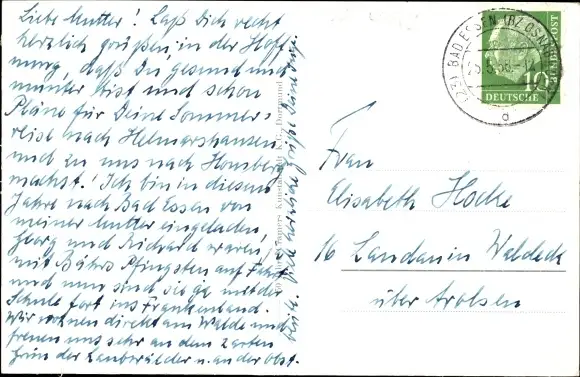 Liebe Mutter! Laß Dich recht
herzlich grüßen, in der Hoff-
nung, daß Du gesund und
munter bist und schon
Pläne für Deine Sommer-
reise nach Helmarshausen
und zu uns nach
machst! Ich bin in diesem
Jahre nach Bad Essen von
meiner Mutter eingeladen.
Georg und Richard waren
mit Pfingsten auf Fahrt
und nun sind sie mit der
Schule fort ins Frankenland.
Wir wohnen direkt am Walde und
freuen uns sehr an dem zarten
Grün der Laubwälder u. an der Obst-
herzliche Grüße
BAD ESSEN (BZ OSNABRÜCK)
a
DEUTSCHE BUNDESPOST
10
Frau
Elisabeth Hocke
16 Landau in Waldeck
über Arolsen